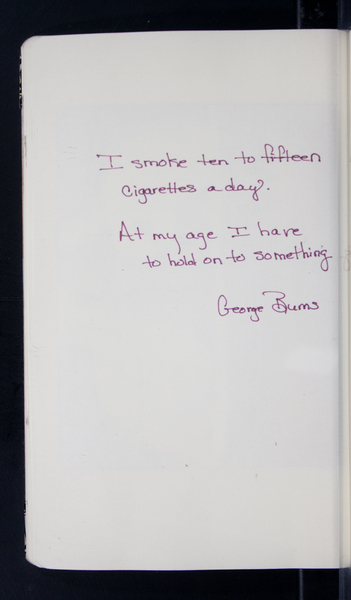 I smoke ten to fifteen
cigarettes a day.
At my age I have
to hold on to something
George Burns